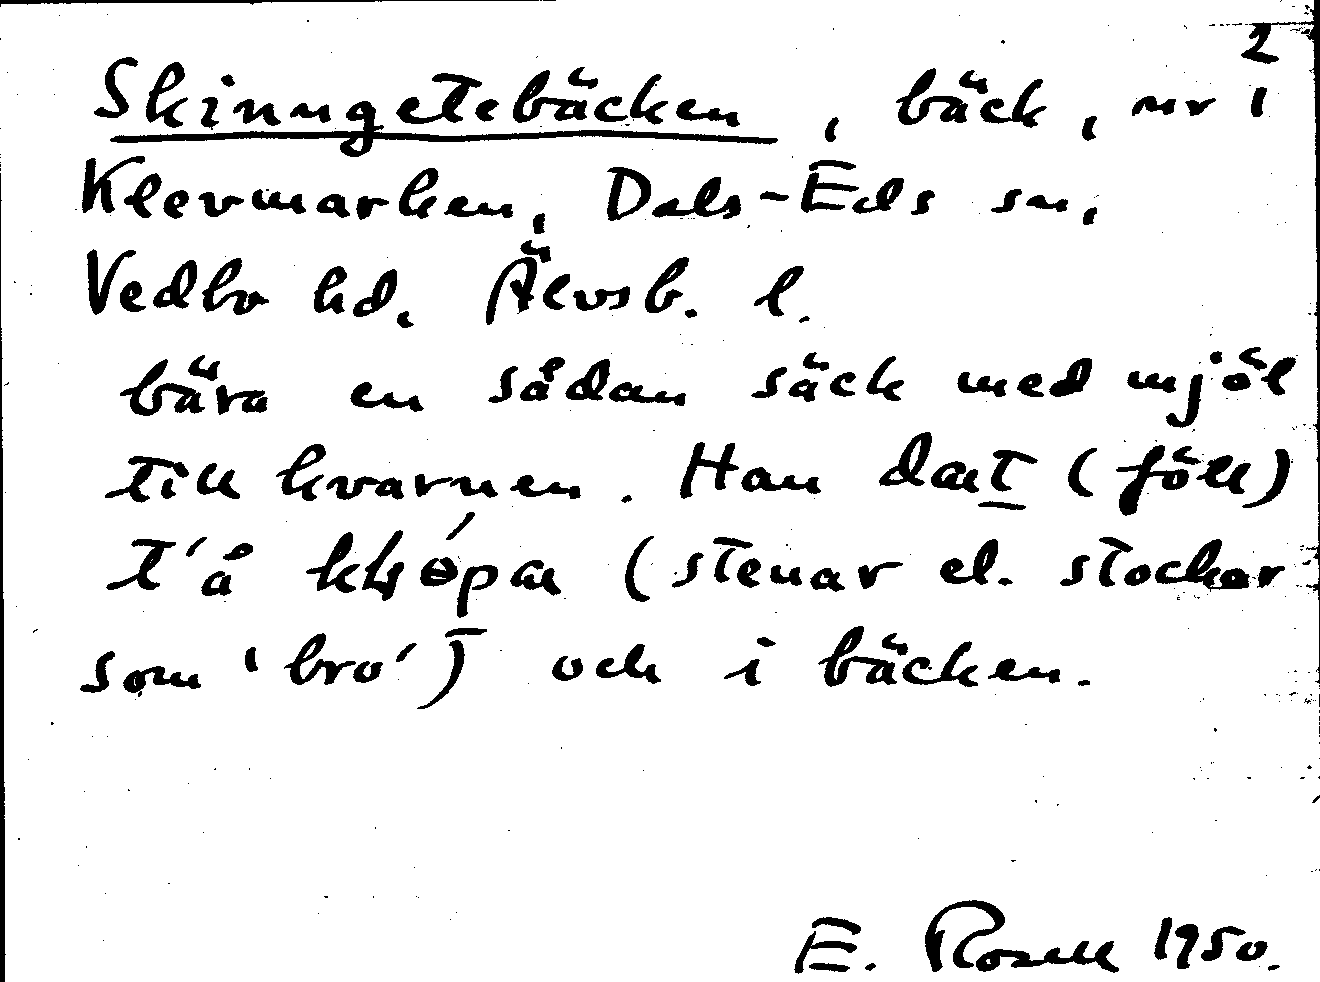 2
Skinngetebäcken, bäck, nr 1
Klevmarken, Dals-Eds sn,
Vedbo hd, Älvsb. l.
bära en sådan säck med mjöl
till kvarnen. Han dat (föll)
t'å (stenar el. stockar
som 'bro') och i bäcken.
E. Rosell 1950.